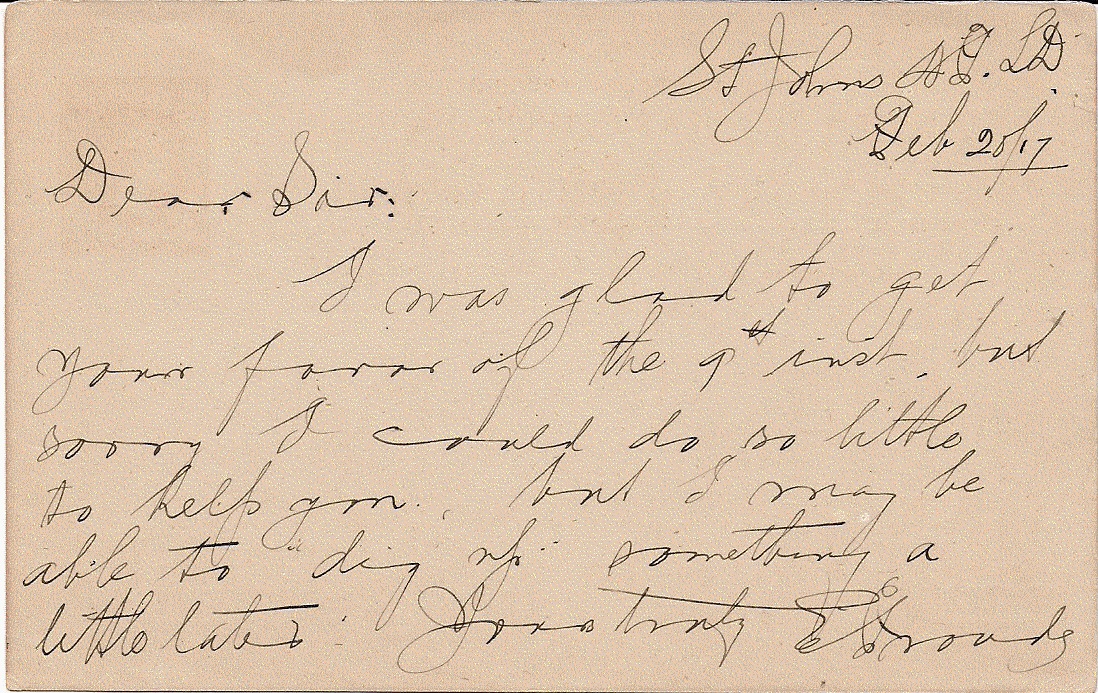 St Johns N.F.LD.
Feb 20/17
Dear Sir:
I was glad to get
your favor of the 9th inst, but
sorry I could do so little
to help you, but I may be
able to "dig up" something a
little later. Yours truly